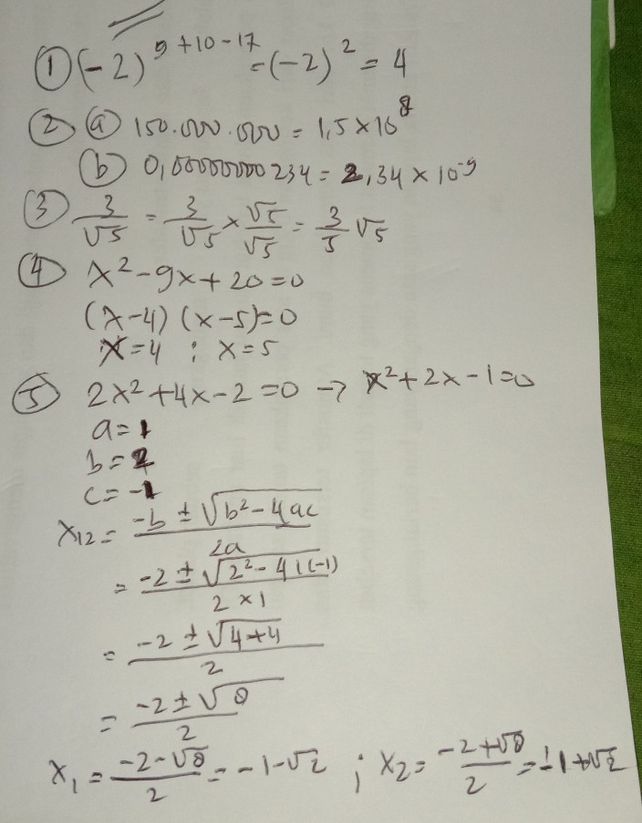 ① (-2)^9+10-17 = (-2)^2 = 4
② ⓐ 150.000.000 = 1,5 × 10^8
ⓑ 0,00000000234 = 2,34 × 10^-9
③ 3/√5 = 3/√5 × √5/√5 = 3/5 √5
④ x² - 9x + 20 = 0
(x-4) (x-5) = 0
x = 4 ; x = 5
⑤ 2x² + 4x - 2 = 0 → x² + 2x - 1 = 0
a = 1
b = 2
c = -1
x12 = (-b ± √(b² - 4ac))/2a
= (-2 ± √(2² - 4 1 (-1)))/(2 × 1)
= (-2 ± √(4+4))/2
= (-2 ± √8)/2
x₁ = (-2-√8)/2 = -1-√2 ; x₂ = (-2+√8)/2 = -1+√2